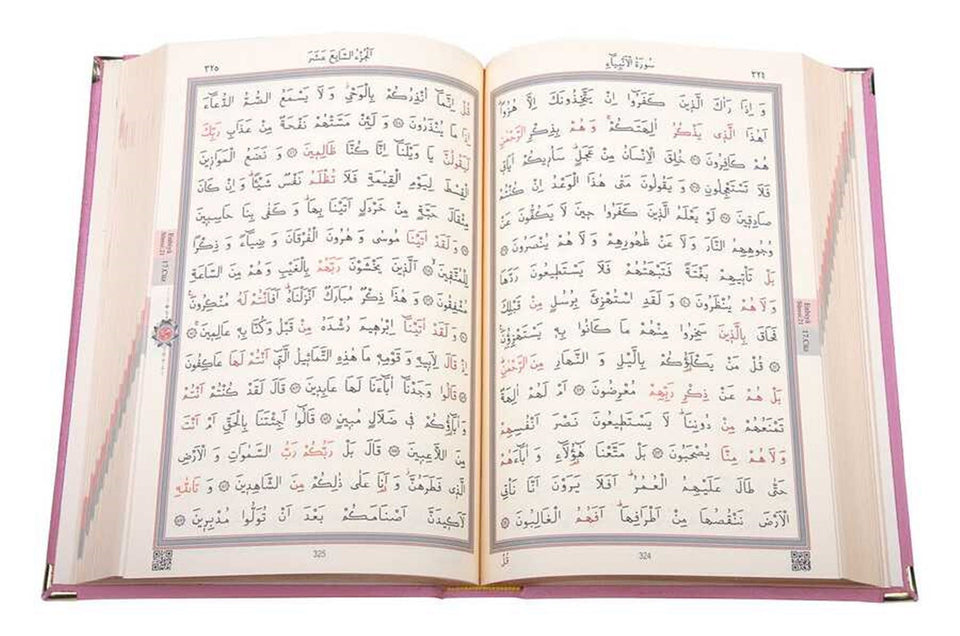 سورة الانبياء
٣٢٤
و اذا راك الذين كفروا ان يتخذونك الا هزوا
اهذا الذي يذكر الهتكم و هم بذكر الرحمن
هم كافرون خلق الانسان من عجل ساريكم اياتي
فلا تستعجلون و يقولون متى هذا الوعد ان كنتم
صادقين لو يعلم الذين كفروا حين لا يكفون عن
وجوههم النار ولا عن ظهورهم ولا هم ينصرون
بل تاتيهم بغتة فتبهتهم فلا يستطيعون ردها
ولا هم ينظرون و لقد استهزئ برسل من قبلك
فحاق بالذين سخروا منهم ما كانوا به يستهزؤن
قل من يكلؤكم بالليل و النهار من الرحمن
بل هم عن ذكر ربهم معرضون ام لهم الهة
تمنعهم من دوننا لا يستطيعون نصر انفسهم
ولا هم منا يصحبون بل متعنا هؤلاء و اباءهم
حتى طال عليهم العمر افلا يرون انا ناتي
الارض ننقصها من اطرافها افهم الغالبون
324
قل
Enbiyâ
Sûresi: 21
17.Cüz
الجزء السابع عشر
٣٢٥
قل انما انذركم بالوحي و لا يسمع الصم الدعاء
اذا ما ينذرون و لئن مستهم نفحة من عذاب ربك
ليقولن يا ويلنا انا كنا ظالمين و نضع الموازين
القسط ليوم القيمة فلا تظلم نفس شيئا و ان كان
مثقال حبة من خردل اتينا بها و كفى بنا حاسبين
و لقد اتينا موسى و هرون الفرقان و ضياء و ذكرا
للمتقين الذين يخشون ربهم بالغيب و هم من الساعة
مشفقون و هذا ذكر مبارك انزلناه افانتم له منكرون
و لقد اتينا ابرهيم رشده من قبل و كنا به عالمين
اذ قال لابيه و قومه ما هذه التماثيل التي انتم لها عاكفون
قالوا وجدنا اباءنا لها عابدين قال لقد كنتم انتم
و اباؤكم في ضلال مبين قالوا اجئتنا بالحق ام انت
من اللاعبين قال بل ربكم رب السموات و الارض
الذي فطرهن و انا على ذلكم من الشاهدين و تالله
لاكيدن اصنامكم بعد ان تولوا مدبرين
325
Enbiyâ
Sûresi: 21
17.Cüz